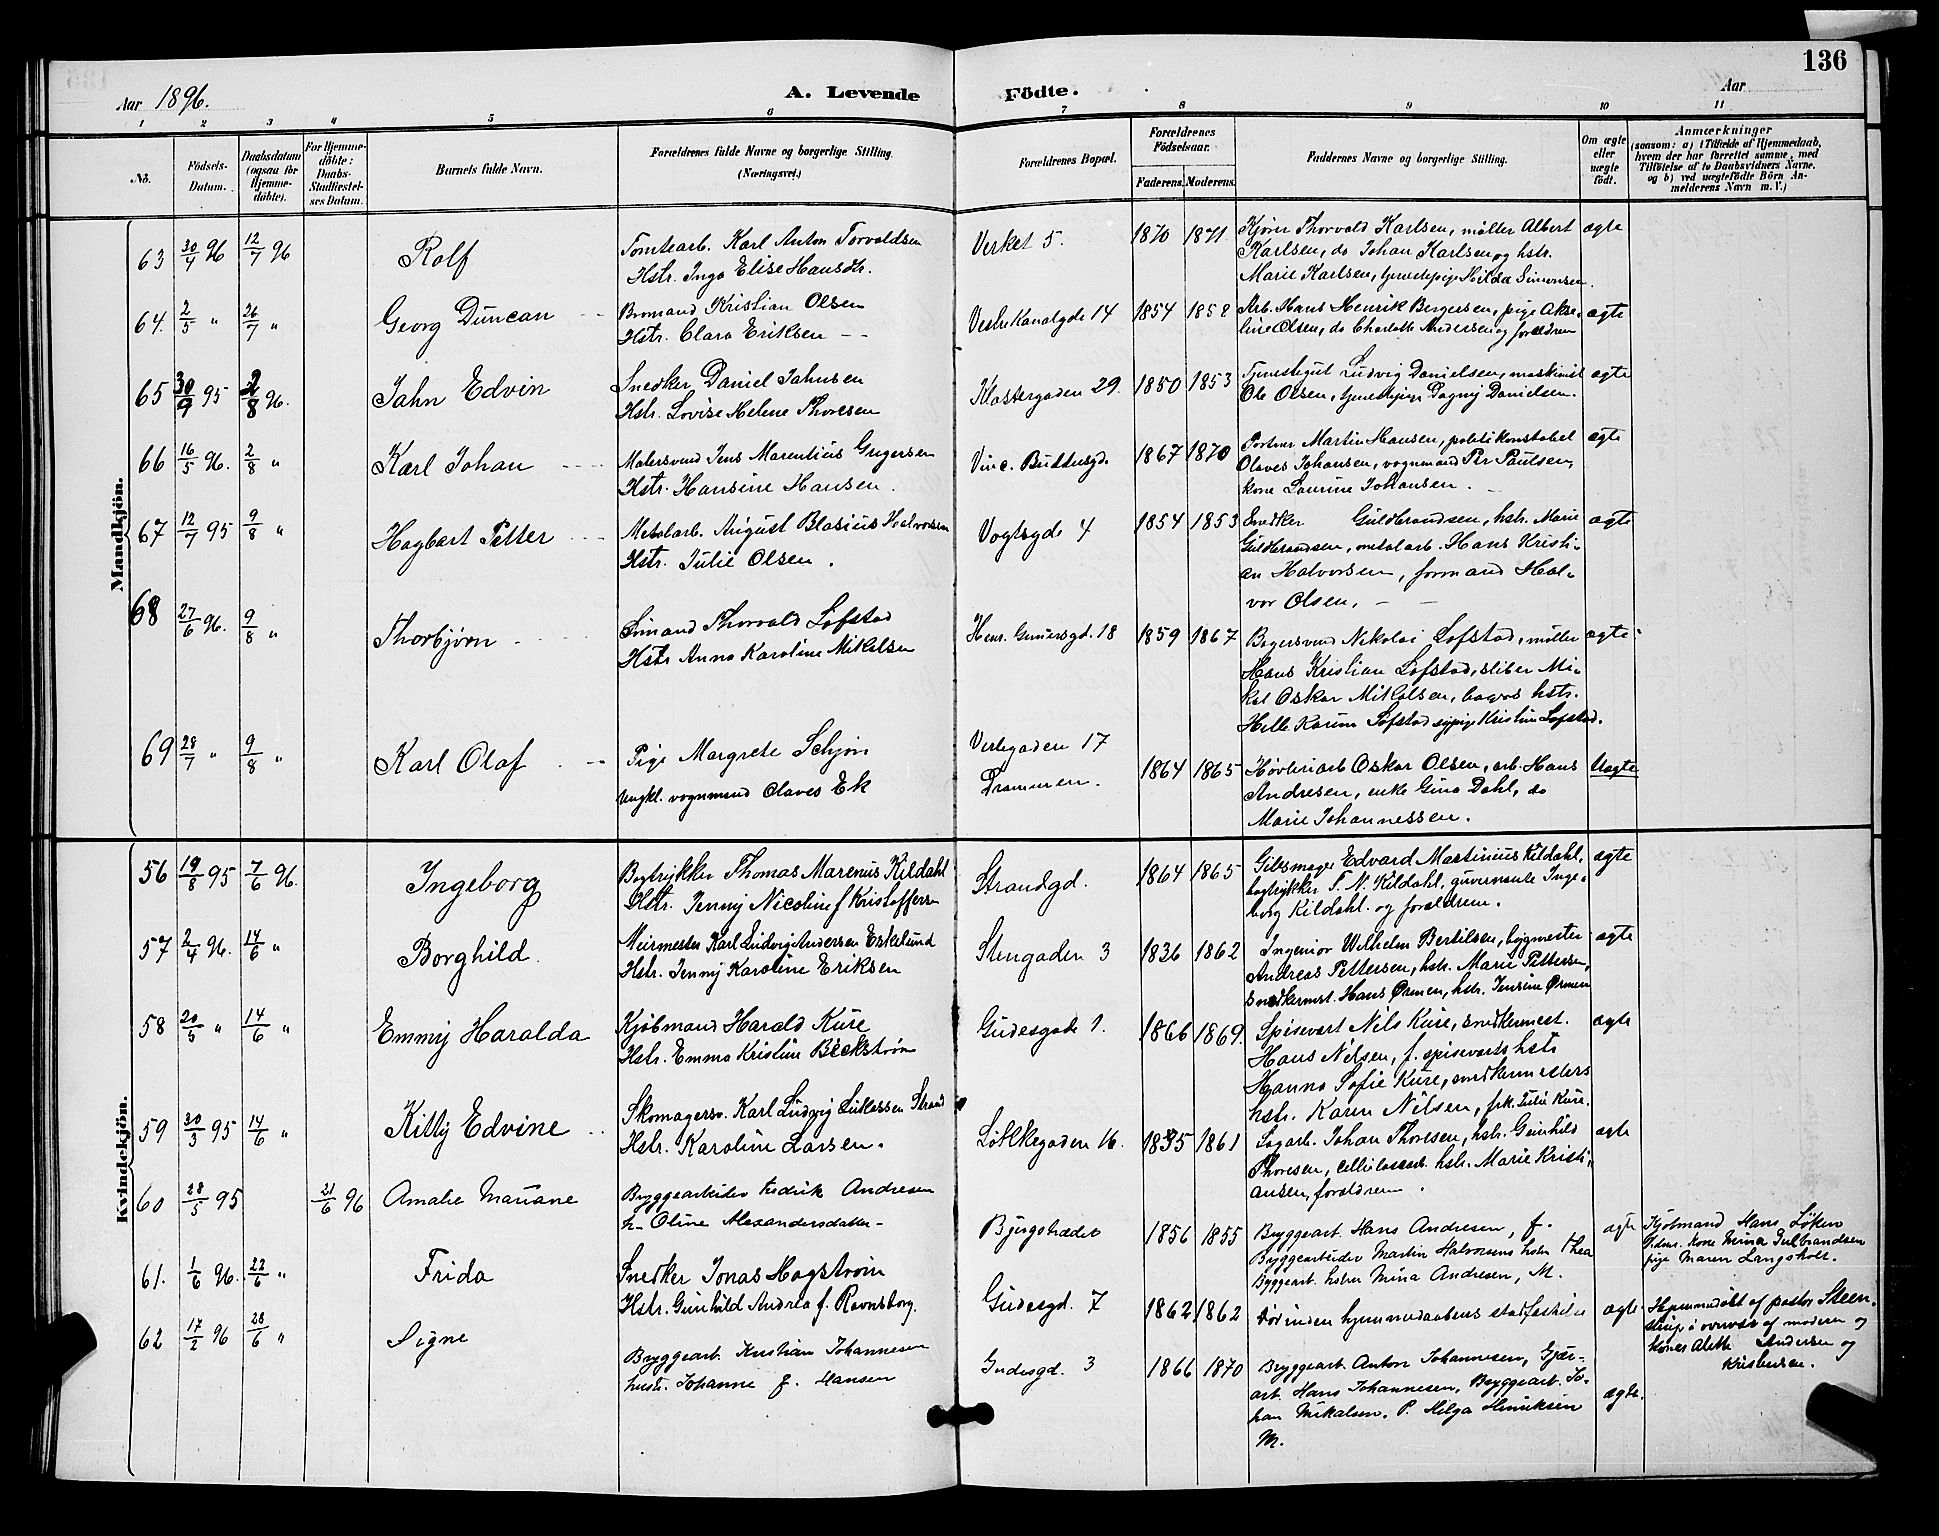 136
Aar 1896.
A. Levende Födte.
Aar
1 2 3 4 5 6 7 8 9 10 11
No.
Födsels-Datum.
Daabsdatum (ogsaa for Hjemmedöbte).
For Hjemmedöbte: Daabs-Stadfæstelses Datum.
Barnets fulde Navn.
Forældrenes fulde Navne og borgerlige Stilling. (Næringsvei.)
Forældrenes Bopæl.
Forældrenes Födselsaar.
Faderens. Moderens.
Faddernes Navne og borgerlige Stilling.
Om ægte eller uægte födt.
Anmærkninger
(saasom: a) i Tilfælde af Hjemmedaab,
hvem der har forrettet samme, med
Tilföielse af to Daabsvidners Navne.
og b) ved uægtefödte Börn Anmelderens Navn m. V.)
Mandkjön.
63 30/4 96 12/7 96 Rolf
Tomtearb. Karl Anton Torvaldsen
Hstr. Inga Elise Hansdtr.
Verket 5. 1870 1871
Kjører Thorvald Karlsen, møller Albert
Karlsen, do Johan Karlsen og hstr.
Marie Karlsen, tjenestepige Hilda Simonsen.
ægte
64. 2/5 " 26/7 " Georg Duncan
Bromand Kristian Olsen
Hstr. Clara Eriksen
Vestre Kanalgde 14 1854 1858
Arb. Hans Henrik Bergersen, pige Akse-
line Olsen, do Charlotte Andersen og forældrene
ægte
65 30/9 95 2/8 96. Jahn Edvin
Snedker Daniel Jahnsen
Hstr. Lovise Helene Thoresen
Klostergaden 29. 1850 1853
Tjenestegut Ludvig Danielsen, maskinist
Ole Olsen, tjenestepige Dagny Danielsen.
ægte
66 16/5 96. 2/8 " Karl Johan
Malersvend Jens Marentius Gregersen
Hstr. Hansine Hansen.
Vinc. Buddesgd. 1867 1870
Portner Martin Hansen, politikonstabel
Olaves Johansen, vognmand Per Paulsen,
kone Laurine Johansen.
ægte
67 12/7 95 9/8 " Hagbart Petter
Metalarb. August Blasius Halvorsen
Hstr. Julie Olsen.
Vogtsgde 4 1854 1853
Snedker Guldbrandsen, hstr. Marie
Guldbrandsen, metalarb. Hans Kristi-
an Halvorsen, formand Hal-
vor Olsen.
ægte
68 27/6 96. 9/8 " Thorbjørn
Simand Thorvald Lofstad
Hstr Anna Karoline Mikalsen
Henr. Gernersgd. 18 1859 1867
Bagersvend Nikolai Lofstad, møller
Hans Kristian Lofstad, sliber Mi-
kal Oskar Mikalsen, bagers hstr.
Helle Karine Lofstad sypige Kristine Lofstad.
ægte
69 28/7 " 9/8 " Karl Olaf
Pige Margrete Schjøn
Ungkl. vognmand Olaves Ek
Verlegaden 17
Drammen. 1864 1865
Høvleriarb Oskar Olsen, arb. Hans
Andresen, enke Gina Dahl, do
Marie Johannessen.
Uægte
Kvindekjön.
56 19/8 95 7/6 96. Ingeborg
Bogtrykker Thomas Marenius Kildahl
Hstr. Jenny Nicoline f Kristoffersen
Strandgd. 1864 1865
Edvard Martinius Kildahl,
bogtrykker T. N. Kildahl, guvernante Inge-
borg Kildahl. og forældrene.
ægte
57 2/4 96. 14/6 " Borghild.
Murmester Karl Ludvig Andersen Eskelund
Hstr. Jenny Karoline Eriksen
Stengaden 3 1836 1862
Ingeniør Wilhelm Bertilsen, bygmester
Andreas Pettersen, hstr. Marie Pettersen,
snedkermst. Hans Ørmen, hstr. Jensine Ørmen
ægte
58 20/5 " 14/6 " Emmy Haralda
Kjøbmand Harald Kure
Hstr. Emma Kristine Beckstrøm
Gudesgade 1. 1866 1869.
Spisevert Nils Kure, snedkermest.
Hans Nilsen, f. spisevertshstr
Hanna Sofie Kure, snedkermesters
hstr. Karen Nilsen, frk. Julie Kure.
ægte
59 30/3 95 14/6 " Kitty Edvine
Skomagersv. Karl Ludvig Lukassen Strand
Hstr. Karoline Larsen.
Løkkegaden 16. 1835 1861
Sagarb. Johan Thoresen, hstr. Gunhild
Thoresen, cellulosearb. hstr. Marie Kristi-
ansen, forældrene.
ægte
60 28/5 95 21/6 96 Amalie Mariane
Bryggearbeider Fredrik Andresen
h- Oline Alexandersdatter-
Bjergstrædet 1856 1855
Bryggearb. Hans Andresen, f.
Bryggearbeider Martin Halvorsens hstr Thea
Byggearb. hstru Mina Andresen, M.
ægte
Kjøbmand Hans Løken
kone Mina Gulbrandsen
pige Maren Langsholt.
61. 1/6 96. 22/6 " Frida
Snedker Jonas Hagstrøm
Hstr. Gunhild Andrea f. Ravnsborg.
Gudesgd. 7 1862 1862
Død inden hjemmedaabens stadfæstelse
ægte.
Hjemmedøbt af pastor Steen-
strup i overvær af moderen og
koner Alette Andersen og
Kristensen.
62 17/2 96 28/6 " Signe
Bryggearb. Kristian Johannesen
hustr. Johanne f. Hansen
Gudesgd. 3 1866 1870
Bryggearb. Anton Johannesen, Gjær-
arb. Hans Johannesen, Bryggearb. Jo-
han Mikalsen. P. Helga Henriksen
M.
ægte.